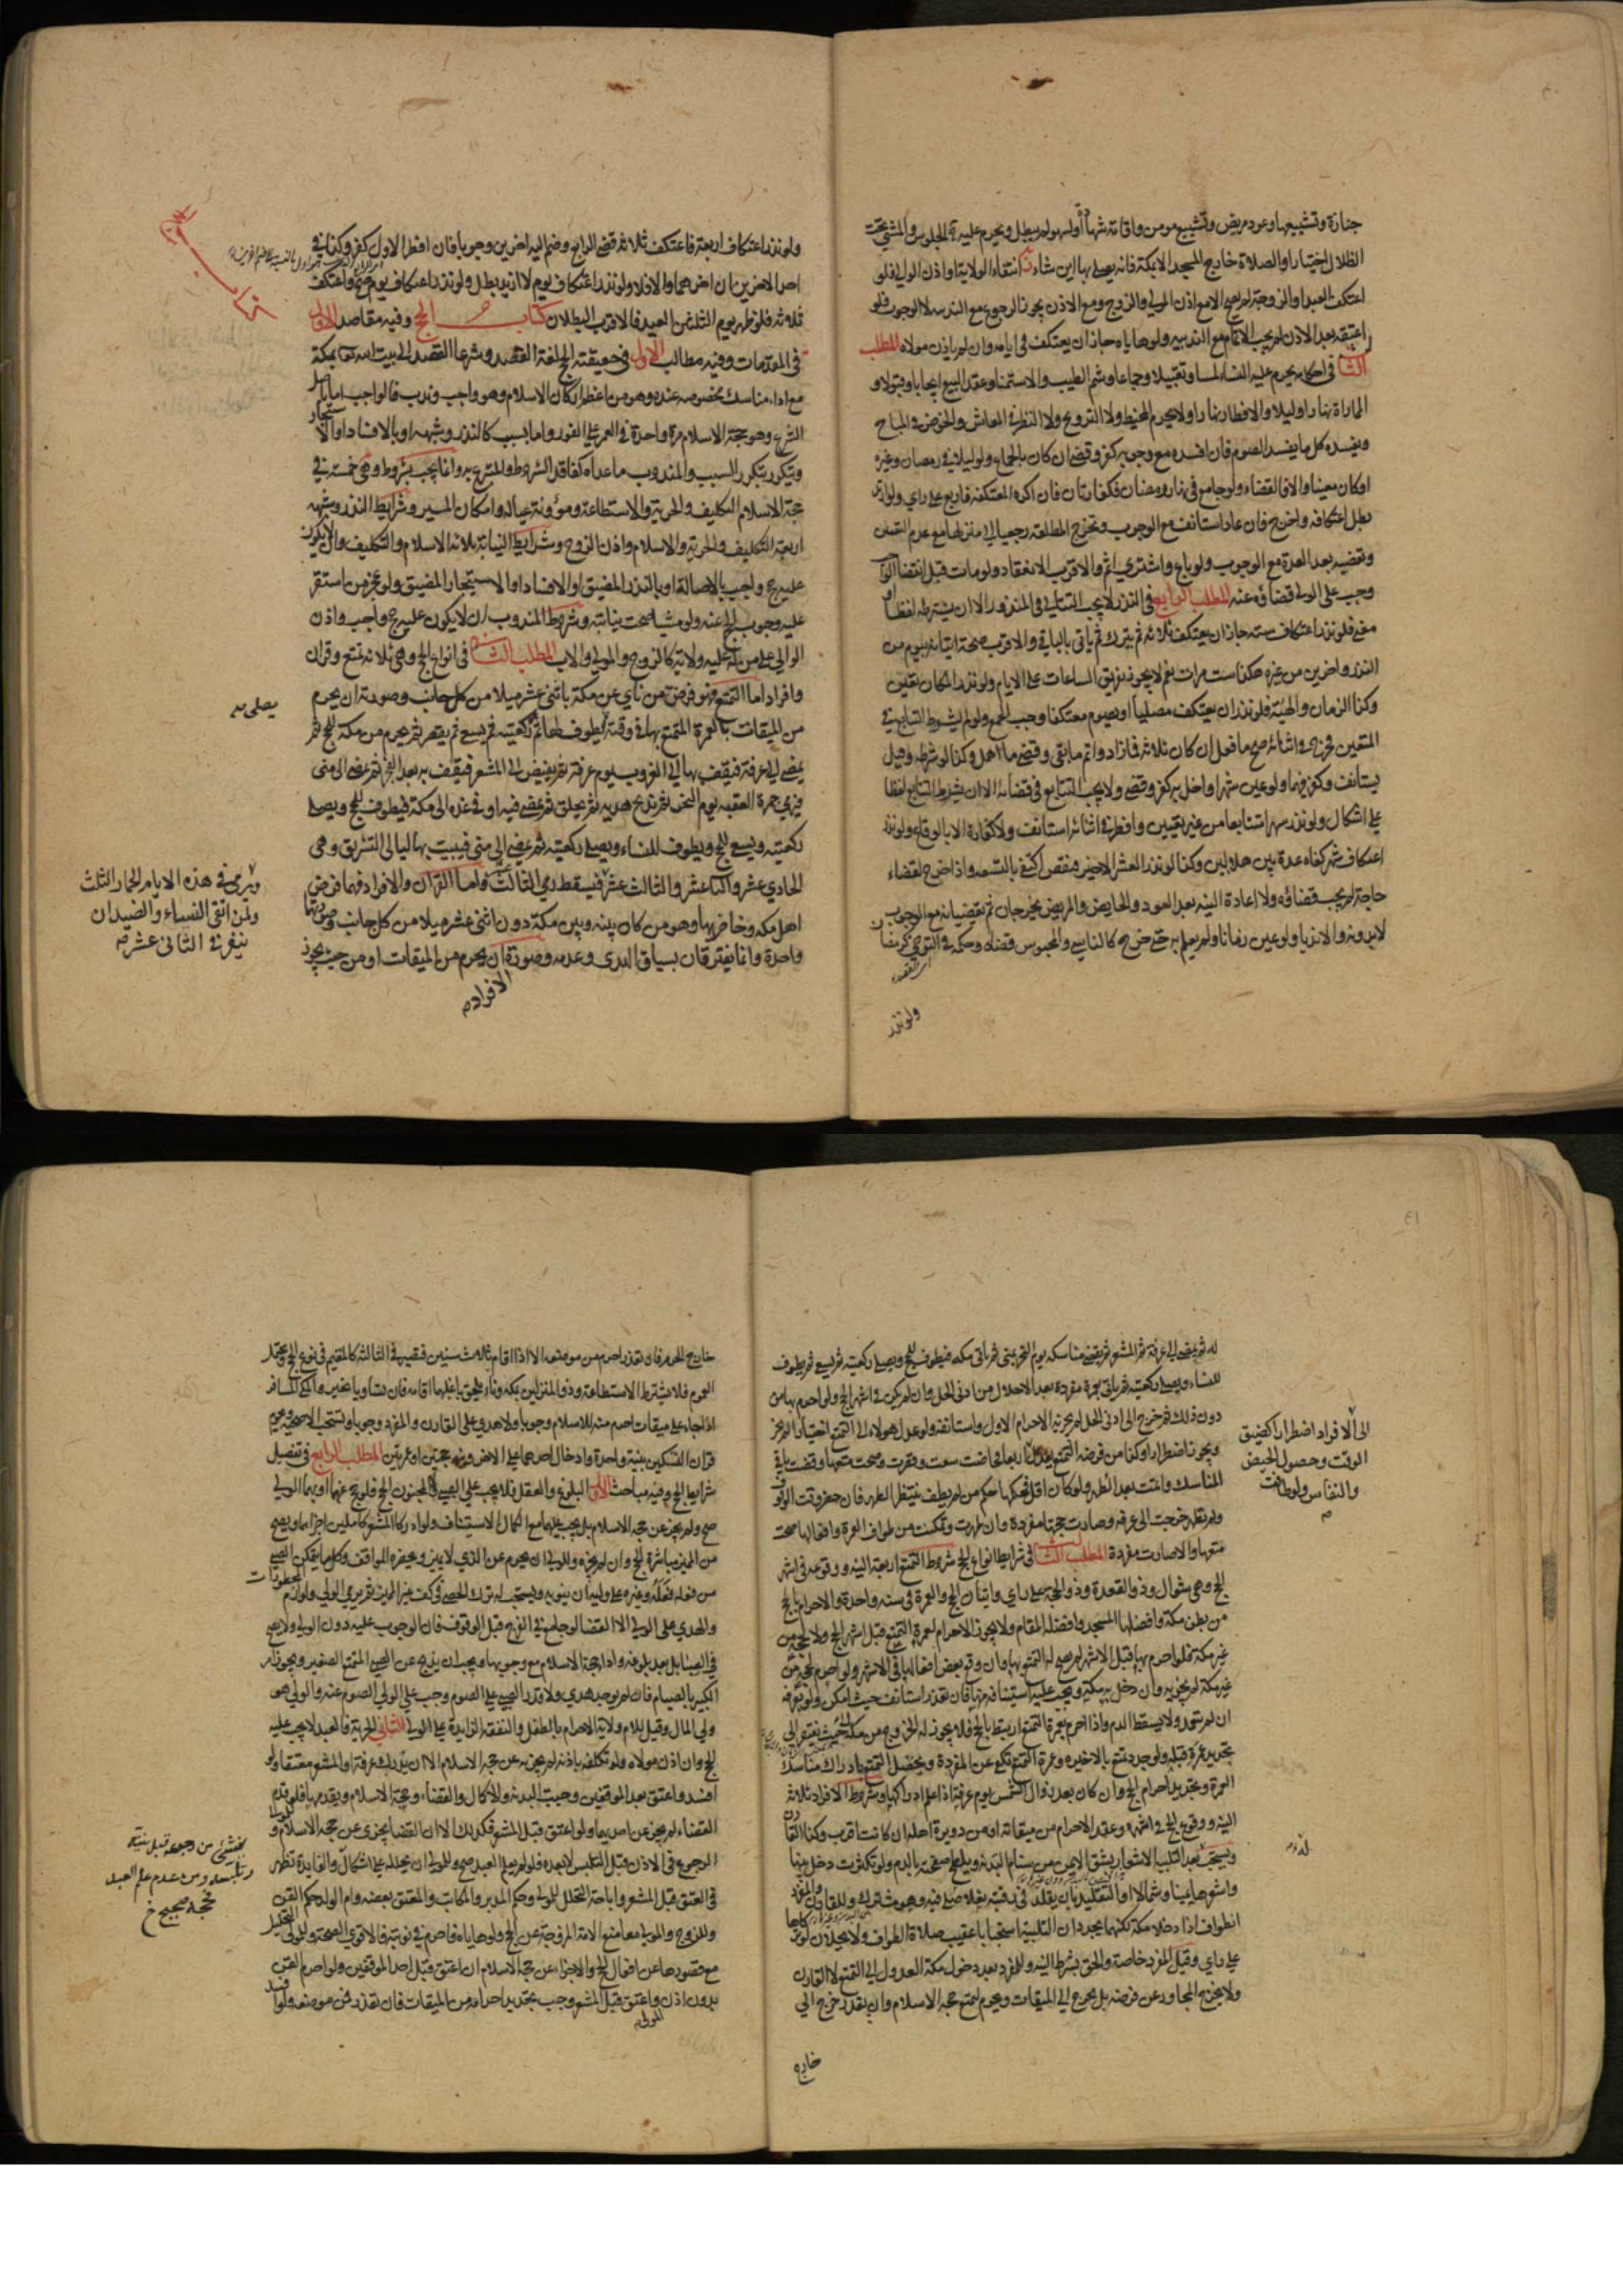 جنازة وتشييعها وعود مريض وتشييع مومن واقامة شهادة ولم يبطل ويحرم عليه الجلوس والمشي تحت
الظلال اختيارا والصلاة خارج المسجد الا بمكة فانه يصلي بها اين شاء انتفاء الولاية او اذن الولي فلو
اعتكف العبد او الزوجة لم يصح الا مع اذن المولى والزوج ومع الاذن يجوز الرجوع مع الندب لا الوجوب فلو
اعتقه بعد الاذن لم يجب الاتمام مع الندب ولو هاياه جاز ان يعتكف في ايامه وان لم ياذن مولاه المطلب
الثالث في احكامه يحرم عليه النساء لمسا وتقبيلا وجماعا وشم الطيب والاستمناء وعقد البيع ايجابا وقبولا و
المماراة نهارا وليلا والافطار نهارا ولا يحرم المخيط ولا التزويج ولا النظر في المعاش والخوض في المباح
ويفسده كل ما يفسد الصوم فان افسده مع وجوبه كفر وقضى ان كان بالجماع ولو ليلا في رمضان وغيره
او كان معينا والا فالقضاء ولو جامع في نهار رمضان فكفارتان فان اكره المعتكفة فاربع على راي ولو ارتد
بطل اعتكافه واخرج فان عاد استانف مع الوجوب وتخرج المطلقة رجعيا الى منزلها مع عدم التعيين
وتقضيه بعد العدة مع الوجوب ولو باع واشترى اثم والاقرب الانعقاد ولو مات قبل انقضاء الواجب
وجب على الولي قضاؤه عنه المطلب الرابع في النذر لا يجب التتالي في المنذور الا ان يشترطه لفظا او
معنى فلو نذر اعتكاف ستة جاز ان يعتكف ثلاثة ثم يترك ثم ياتي بالباقي والاقرب صحة اتيانه بيوم من
النذر واخرين من غيره هكذا ست مرات نعم لا يجوز تفريق الساعات على الايام ولو نذر المكان تعين
وكذا الزمان والهيئة فلو نذر ان يعتكف مصليا او يصوم معتكفا وجب الجمع ولو لم يشترط التتابع في
المتعين فخرج في اثنائه صح ما فعل ان كان ثلاثة فما زاد واتم ما بقي وقضى ما اهمل وكفر لو شرطه وقيل
يستانف وكفر فيهما ولو عين شهرا واخل به كفر وقضى ولا يجب التتابع في قضائه الا ان يشترط التتابع لفظا
على اشكال ولو نذر شهرا متتابعا من غير تعيين وافطر في اثنائه استانف ولا كفارة الا بالوقاع ولو نذر
اعتكاف شهر كفاه عدة بين هلالين وكذا لو نذر العشر الاخير فنقص اكتفى بالتسعة واذا خرج لقضاء
حاجة لم يجب قضاؤه ولا اعادة النية بعد العود والحايض والمريض يخرجان ثم يقضيانه مع الوجوب
لابدونه والا ندبا ولو عين زمانا ولم يعلم به حتى خرج كالناسي والمحبوس قضاه
ولو نذر
ولو نذر اعتكاف اربعة فاعتكف ثلاثة قضى الرابع وضم اليه اخرين وجوبا فان افطر الاول كفر وكذا في
احد الاخرين ان اخرهما والا فلا ولو نذر اعتكاف يوم لا ازيد بطل ولو نذر اعتكاف يوم صح واعتكف
ثلاثة فلو ظهر يوم الثلثين العيد فالاقرب البطلان كتاب الحج وفيه مقاصد الاول
في المقدمات وفيه مطالب الاول في حقيقته الحج لغة القصد وشرعا القصد الى بيت الله تعالى بمكة
مع اداء مناسك مخصوصة عنده وهو من اعظم اركان الاسلام وهو واجب وندب فالواجب اما باصل
الشرع وهو حجة الاسلام مرة واحدة في العمر على الفور واما بسبب كالنذر وشبهه او بالافساد او الاستيجار
ويتكرر بتكرر السبب والمندوب ما عداه كفاقد الشروط والمتبرع به وانما يجب بشروط وهي خمسة في
حجة الاسلام التكليف والحرية والاستطاعة ومؤونة عياله وامكان المسير وشرايط النذر وشبهه
اربعة التكليف والحرية والاسلام واذن الزوج وشرايط النيابة ثلاثة الاسلام والتكليف وان لا يكون
عليه حج واجب بالاصالة او بالنذر المضيق او الافساد او الاستيجار المضيق ولو عجز من استقر
عليه وجوب الحج عنه ولو مشيا صحت نيابته وشروط المندوب ان لا يكون عليه حج واجب واذن
الوالي على من له عليه ولاية كالزوج والمولى والاب المطلب الثاني في انواع الحج وهي ثلاثة تمتع وقران
وافراد اما التمتع فهو فرض من ناى عن مكة باثنى عشر ميلا من كل جانب وصورته ان يحرم
من الميقات بالعمرة المتمتع بها في وقته ثم يطوف لها ثم ركعتيه ثم يسعى ثم يقصر ثم يحرم من مكة للحج ثم
يمضي الى عرفة فيقف بها الى الغروب يوم عرفة ثم يفيض الى المشعر فيقف به بعد الفجر ثم يمضي الى منى
فيرمي جمرة العقبة يوم النحر ثم يذبح هديه ثم يحلق ثم يمضي فيه او في غده الى مكة فيطوف للحج ويصلي
ركعتيه ويسعى للحج ويطوف للنساء ويصلي ركعتيه ثم يمضي الى منى فيبيت بها ليالي التشريق وهي
الحادي عشر والثاني عشر والثالث عشر فيسقط رمي الثالث واما القران والافراد فهما فرض
اهل مكة وحاضريها وهو من كان بينه وبين مكة دون اثنى عشر ميلا من كل جانب وصورتهما
واحدة وانما يفترقان بسياق الهدي وعدمه وصورة ان يحرم من الميقات او من حيث يجوز
الافراد
يصلي
ويرمي في هذه الايام الجمار الثلث
ولمن اتقى النساء والصيد ان
ينفر في الثاني عشر
٤١
له ثم يمضي الى عرفة ثم المشعر ثم يقضي مناسكه يوم النحر بمنى ثم ياتي مكة فيطوف للحج ويصلي ركعتيه ثم يسعى ثم يطوف
للنساء ويصلي ركعتيه ثم ياتي بعمرة مفردة بعد الاحلال من ادنى الحل وان لم يكن في اشهر الحج ولو احرم بها من
دون ذلك ثم خرج الى ادنى الحل لم يجزئه الاحرام الاول واستانفه ولو عدل هولاء الى التمتع اختيارا لم يجز
ويجوز اضطرارا وكذا من فرضه التمتع يعدل
المناسك واتمت بعد الطهر ولو كان اقل فحكمها حكم من لم يطف فتنتظر الطهر فان حضر وقت الوقوف
ولم تطهر خرجت الى عرفة وصارت حجتها مفردة وان طهرت وتمكنت من طواف العمرة وافعالها صحت
متعتها والا صارت مفردة المطلب الثالث في شرايط انواع الحج شروط التمتع اربعة النية ووقوعه في اشهر
الحج وهي شوال وذو القعدة وذو الحجة على راي واتيان الحج والعمرة في سنة واحدة والاحرام بالحج
من بطن مكة وافضلها المسجد وافضله المقام ولا يجوز الاحرام لعمرة التمتع قبل اشهر الحج ولا لحجه من
غير مكة فلو احرم بها قبل الاشهر لم يصح له التمتع بها وان وقع بعض افعالها في الاشهر ولو احرم لحجه من
غير مكة لم يجزئه وان دخل به مكة ويجب عليه استينافه منها فان تعذر استانف حيث امكن ولو بعرفة
ان لم يتعمد ولا يسقط الدم واذا احرم بعمرة التمتع ارتبط بالحج فلا يجوز له الخروج من مكة حيث يفتقر الى
تجديد عمرة قبله ولو جدد تمتع بالاخيرة وعمرة التمتع تكفي عن المفردة ويحصل التمتع بادراك مناسك
العمرة وتجديد احرام الحج وان كان بعد زوال الشمس يوم عرفة اذا علم ادراكها وشروط الافراد ثلاثة
النية ووقوع الحج في اشهره وعقد الاحرام من ميقاته او من دويرة اهله ان كانت اقرب وكذا القارن
ويستحب بعد التلبية الاشعار بشق الايمن من سنام البدنة ويلطخ صفحته بالدم ولو تكثرت دخل بينها
واشعرها يمينا وشمالا او التقليد بان يقلد في رقبته نعلا صلى فيه وهو مشترك وللقارن والمفرد
الطواف اذا دخلا مكة لكنهما يجددان التلبية استحبابا عقيب صلاة الطواف ولا يحلان لو تركاها
على راي وقيل المفرد خاصة والحق بشرط النية وللمفرد بعد دخول مكة العدول الى التمتع لا القارن
ولا يخرج المجاور عن فرضه بل يخرج الى الميقات ويحرم لتمتع حجة الاسلام وان تعذر خرج الى
خارج
الى الافراد اضطرارا كضيق
الوقت وحصول الحيض
والنفاس ولو طافت
خارج الحرم فان تعذر احرم من موضعه الا اذا اقام ثلاث سنين فيصير في الثالثة كالمقيم في نوع الحج ويحتمل
العموم فلا يشترط الاستطاعة وذو المنزلين بمكة وناء يلحق باغلبهما اقامة فان تساويا تخير والمكي المسافر
اذا جاء على ميقات احرم منه للاسلام وجوبا ولا هدي على القارن والمفرد وجوبا وتستحب الاضحية ويحرم
قران النسكين بنية واحدة وادخال احدهما على الاخر ونية حجتين او عمرتين المطلب الرابع في تفصيل
شرايط الحج وفيه مباحث الاول البلوغ والعقل فلا يجب على الصبي والمجنون الحج فلو حج عنهما او بهما الولي
صح ولم يجز عن حجة الاسلام بل يجب عليهما مع الكمال الاستيناف ولو ادركا المشعر كاملين اجزأهما ويصح
من المميز مباشرة الحج وان لم يجزه وللولي ان يحرم عن الذي لا يميز ويحضره المواقف وكل ما يتمكن الصبي
من فعله فعله وغيره على وليه ان ينوبه ويستحب له ترك الحصى في كف غير المميز ثم يرمي الولي ولوازم المحظورات
والهدي على الولي الا القضاء لو جامع في الفرج قبل الوقوف فان الوجوب عليه دون الولي ولا يصح
في الصبا بل بعد بلوغه واداء حجة الاسلام مع وجوبها ويجب ان يذبح عن الصبي المتمتع الصغير ويجوز امر
الكبير بالصيام فان لم يوجد هدي ولا قدر الصبي على الصوم وجب على الولي الصوم عنه والولي هو
ولي المال وقيل للام ولاية الاحرام بالطفل والنفقة الزايدة على الولي الثاني الحرية فالعبد لا يجب عليه
الحج وان اذن مولاه ولو تكلفه باذنه لم يجزئه عن حجة الاسلام الا ان يدرك عرفة او المشعر معتقا ولو
افسد واعتق بعد الموقفين وجبت البدنة والاكمال والقضاء وحجة الاسلام ويقدمها فلو قدم
القضاء لم يجز عن احديهما ولو اعتق قبل المشعر فكذلك الا ان القضاء يجزي عن حجة الاسلام وللمولى
الرجوع في الاذن قبل التلبس لا بعده فلو لم يعلم العبد صح وللمولى ان يحلله على اشكال والفايدة تظهر
في العتق قبل المشعر واباحة التحلل للمولى وحكم المدبر والمكاتب والمعتق بعضه وام الولد حكم القن
وللزوج والمولى معا منع الامة المزوجة عن الحج ولو هاياه فاحرم في نوبته فالاقوى الصحة وللمولى التحليل
مع قصورها عن افعال الحج والاجزاء عن حجة الاسلام ان اعتق قبل احد الموقفين ولو احرم القن
بدون اذن واعتق قبل المشعر وجب تجديد احرامه من الميقات فان تعذر فمن موضعه ولو افسد
المولى